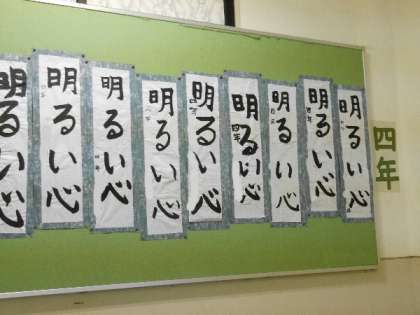 明るい心
明るい心
明るい心
明るい心
明るい心
明るい心
明るい心
明るい心
明るい心
四年